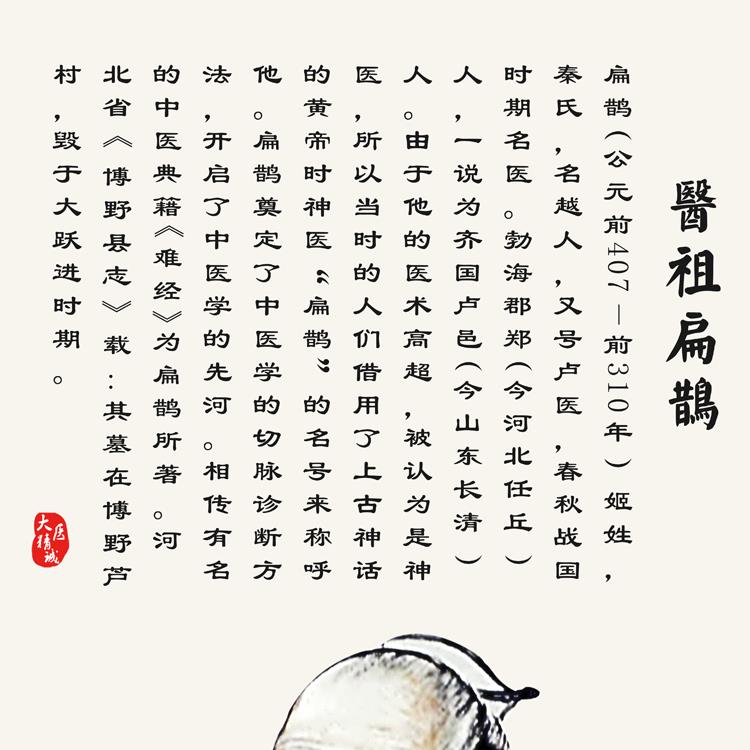 醫祖扁鵲
扁鹊(公元前407—前310年)姬姓，
秦氏，名越人，又号卢医，春秋战国
时期名医。勃海郡郑(今河北任丘)
人，一说为齐国卢邑(今山东长清)
人。由于他的医术高超，被认为是神
医，所以当时的人们借用了上古神话
的黄帝时神医“扁鹊”的名号来称呼
他。扁鹊奠定了中医学的切脉诊断方
法，开启了中医学的先河。相传有名
的中医典籍《难经》为扁鹊所著。河
北省《博野县志》载:其墓在博野芦
村，毁于大跃进时期。
大医精诚